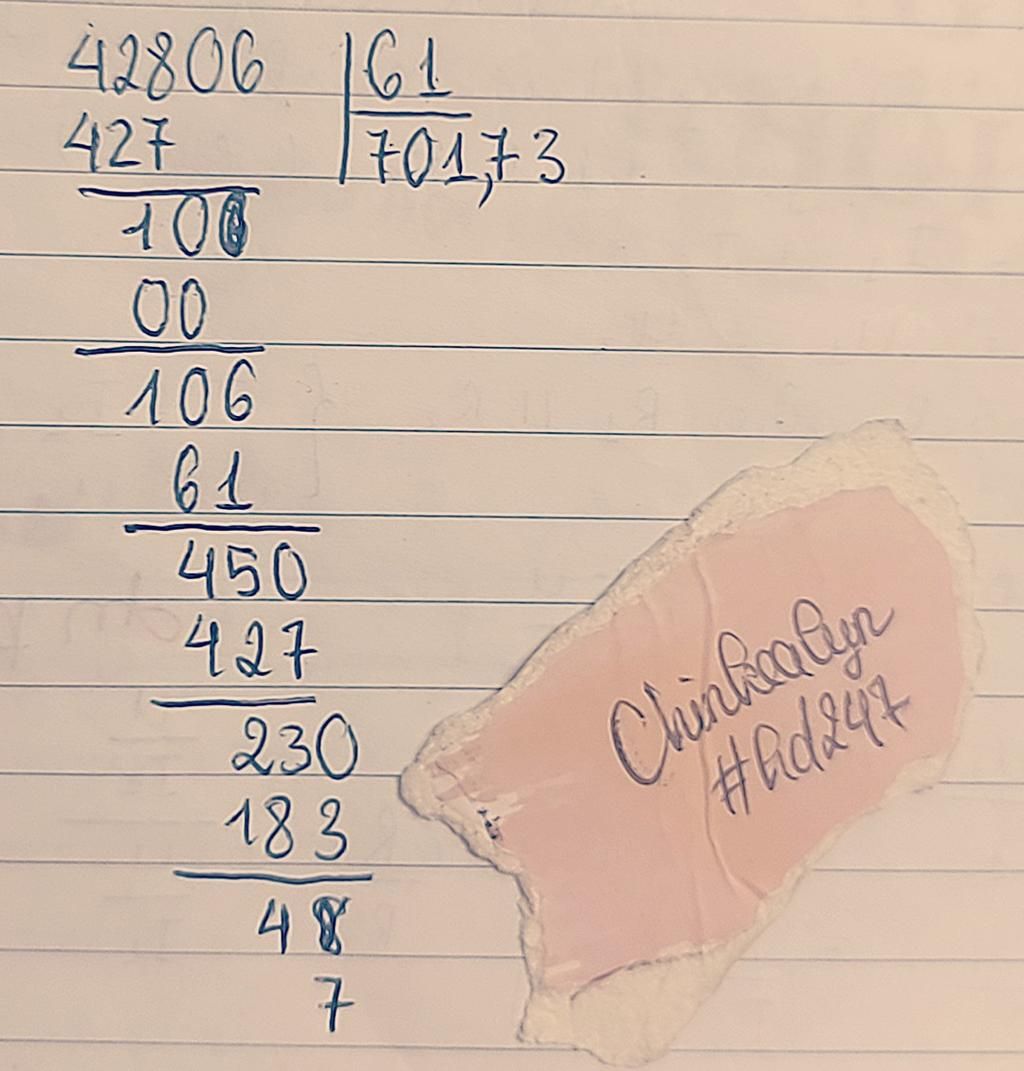 42806 61
427 701,73
10
00
106
61
450
427
230
183
4
7
Chinkaalyn
#hd247